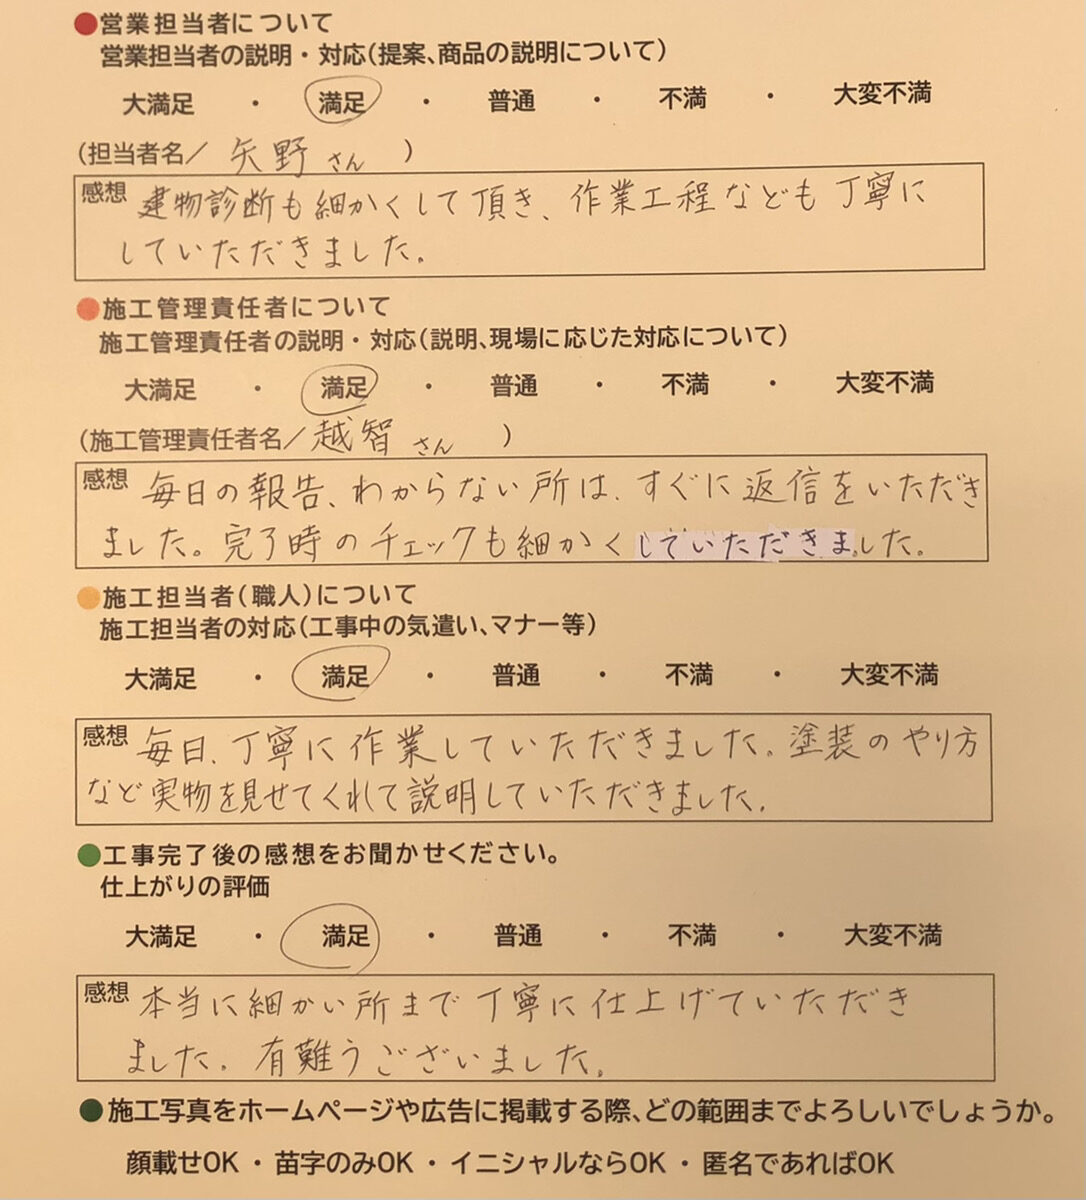 ●営業担当者について
営業担当者の説明・対応(提案、商品の説明について)
大満足 ・ 満足 ・ 普通 ・ 不満 ・ 大変不満
(担当者名/ 矢野さん )
感想 建物診断も細かくして頂き、作業工程なども丁寧に
していただきました。
●施工管理責任者について
施工管理責任者の説明・対応(説明、現場に応じた対応について)
大満足 ・ 満足 ・ 普通 ・ 不満 ・ 大変不満
(施工管理責任者名/越智さん )
感想 毎日の報告、わからない所は、すぐに返信をいただき
ました。完了時のチェックも細かくしていただきました。
●施工担当者(職人)について
施工担当者の対応(工事中の気遣い、マナー等)
大満足 ・ 満足 ・ 普通 ・ 不満 ・ 大変不満
感想 毎日、丁寧に作業していただきました。塗装のやり方
など実物を見せてくれて説明していただきました。
●工事完了後の感想をお聞かせください。
仕上がりの評価
大満足 ・ 満足 ・ 普通 ・ 不満 ・ 大変不満
感想 本当に細かい所まで丁寧に仕上げていただき
ました。有難うございました。
●施工写真をホームページや広告に掲載する際、どの範囲までよろしいでしょうか。
顔載せOK・苗字のみOK・イニシャルならOK・匿名であればOK